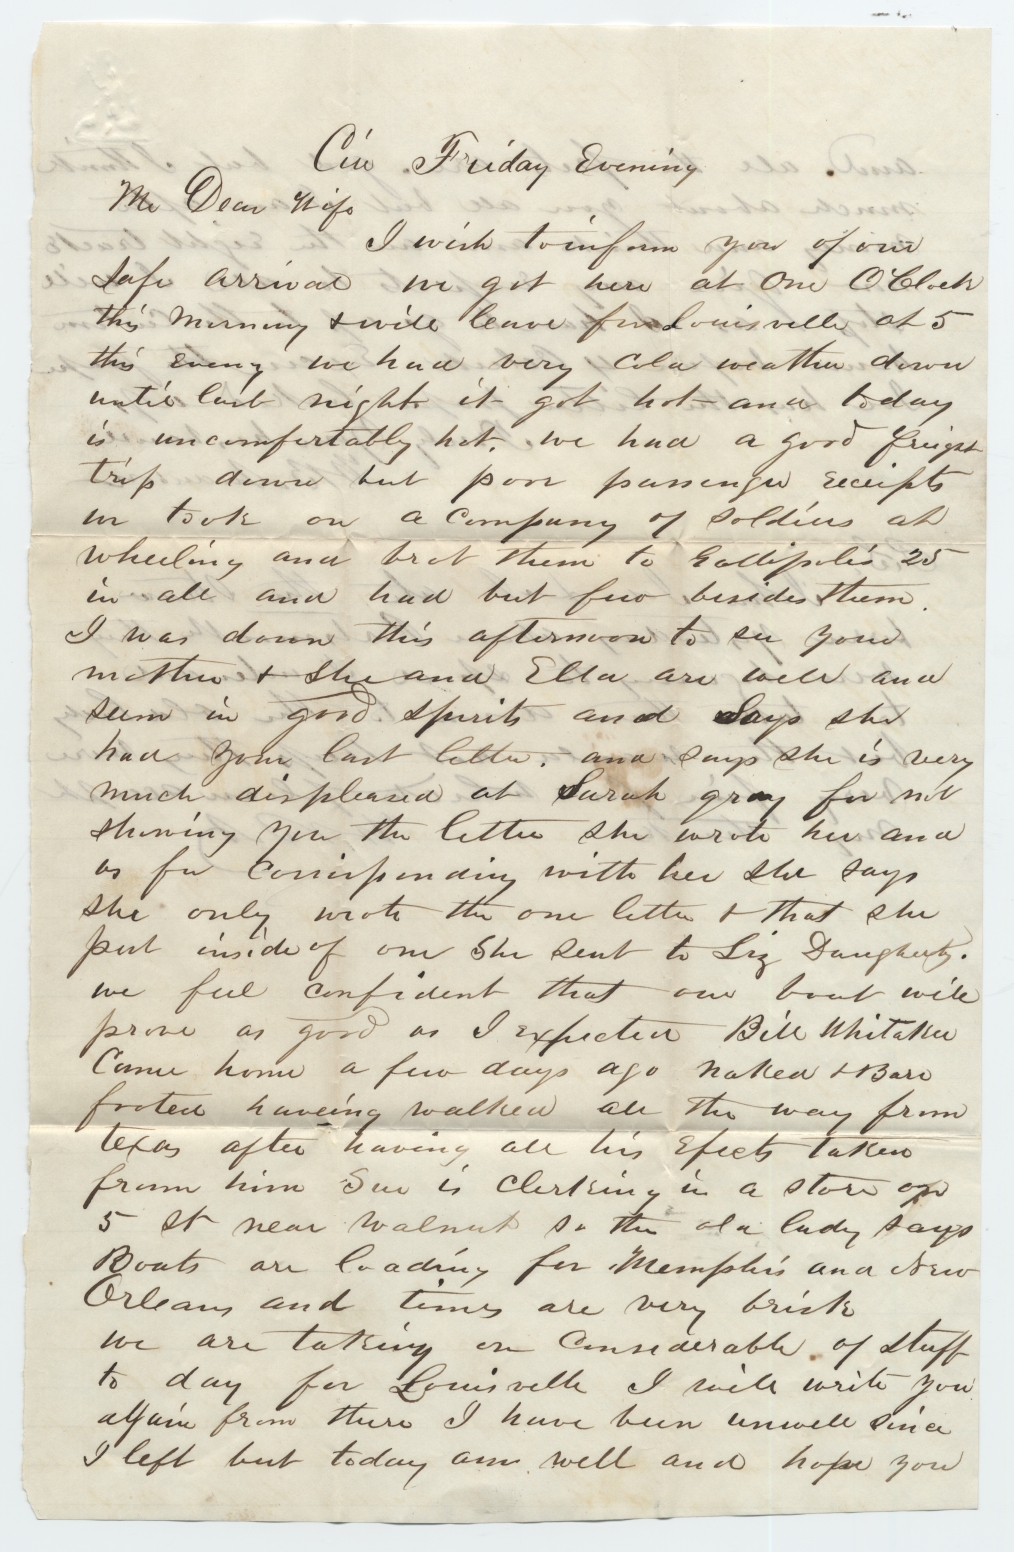 Cin Friday Evening
My Dear Wife
I wish to inform you of our
safe arrival we got here at One O'Clock
this morning & will leave for Louisville at 5
this eveng we had very cold weather down
until last night it got hot and today
is uncomfertably hot. we had a good freight
trip down but poor passenger receipts
we took on a company of soldiers at
wheeling and brot them to Gallipolis 25
in all and had but few besides them.
I was down this afternoon to see your
mother & she and Ella are well and
seem in good spirits and Says she
had your last letter. and says she is very
much displeased at Sarah gray for not
showing you the letter she wrote her and
as for corrisponding with her she says
she only wrote the one letter & that she
put inside of one she sent to Liz Daugherty.
we feel confident that our boat will
prove as good as I expected Bill Whitaker
Came home a few days ago naked & Bare
footed haveing walked all the way from
texas after having all his Efects taken
from him Sue is Clerking in a store on
5 St near walnut so the old lady says
Boats are loading for Memphis and New
Orleans and times are very brisk
we are taking on Considerable of stuff
to day for Louisville I will write you
again from there I have been unwell since
I left but today am well and hope you